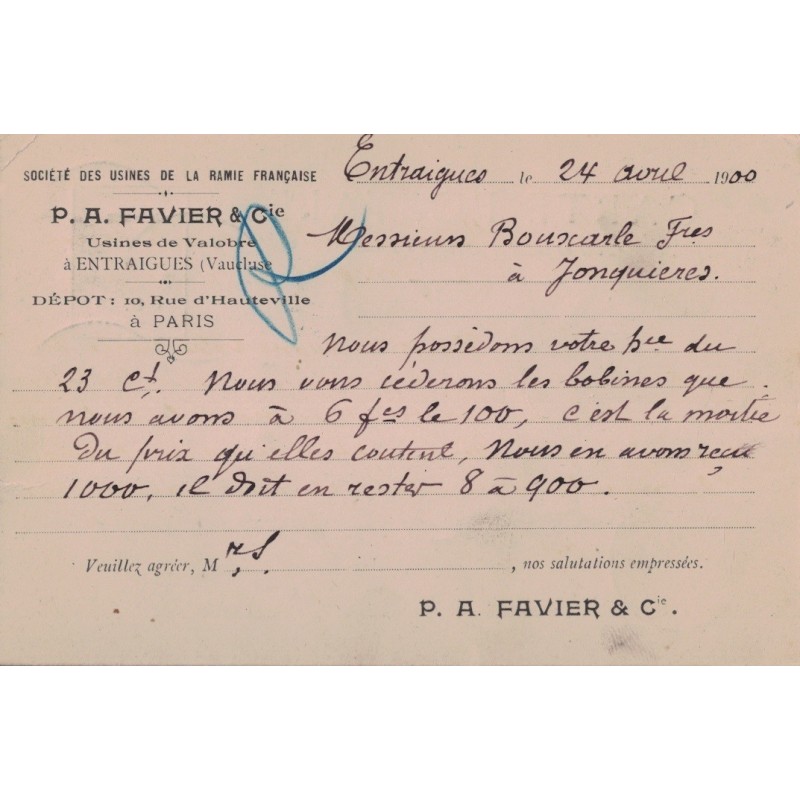 SOCIÉTÉ DES USINES DE LA RAMIE FRANÇAISE
P. A. FAVIER & Cie
Usines de Valobre
à ENTRAIGUES (Vaucluse
DÉPOT : 10, Rue d'Hauteville
à PARIS
Entraigues le 24 avril 1900
Messieurs Bouscarle Fres
à Jonquières.
Nous possédons votre hre du
23 ct. Nous vous céderons les bobines que
nous avons à 6 fcs le 100, c'est la moitié
du prix qu'elles coutent, Nous en avons reçu
1000, il doit en rester 8 à 900.
Veuillez agréer, Mrs. , nos salutations empressées.
P. A. FAVIER & Cie.